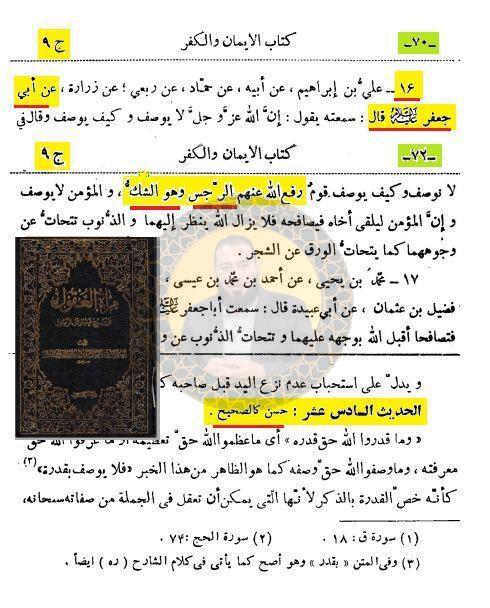 -٧٠- كتاب الايمان والكفر ج ٩
١٦ ــ عليُّ بن إبراهيم، عن أبيه، عن حمّاد، عن ربعي؛ عن زرارة، عن أبي
جعفر عليه السلام قال: سمعته يقول: إنَّ الله عزَّ وجلَّ لا يوصف وكيف يوصف وقال في
-٧٢- كتاب الايمان والكفر ج ٩
لا نوصف وكيف يوصف قومٌ رفع الله عنهم الرّجس وهو الشكُّ، و المؤمن لايوصف
و إنَّ المؤمن ليلقى أخاه فيصافحه فلا يزال الله ينظر إليهما و الذُّنوب تتحاتُّ عن
وجوههما كما يتحاتُّ الورق عن الشجر.
١٧ ــ محمّد بن يحيى، عن أحمد بن محمّد بن عيسى،
فضيل بن عثمان، عن أبي عبيدة قال: سمعت أبا جعفر عليه السلام
فتصافحا أقبل الله بوجهه عليهما و تتحاتُّ الذُّنوب عن و
مرآة العقول
و يدلّ على استحباب عدم نزع اليد قبل صاحبه
الحديث السادس عشر: حسن كالصحيح.
«وما قدروا الله حقّ قدره» أي ما عظموا الله حقّ تعظيمه أو ما عرفوا الله حقّ
معرفته، وماوصفوا الله حقّ وصفه كما هو الظاهر من هذا الخبر «فلا يوصف بقدرة»(٣)
كأنّه خصّ القدرة بالذكر لأنّها التي يمكن أن تعقل في الجملة من صفاته سبحانه،
(١) سورة ق: ١٨. (٢) سورة الحج: ٧٤.
(٣) وفى المتن «بقدر» وهو أصح كما يأتى فى كلام الشارح (ره) ايضاً.